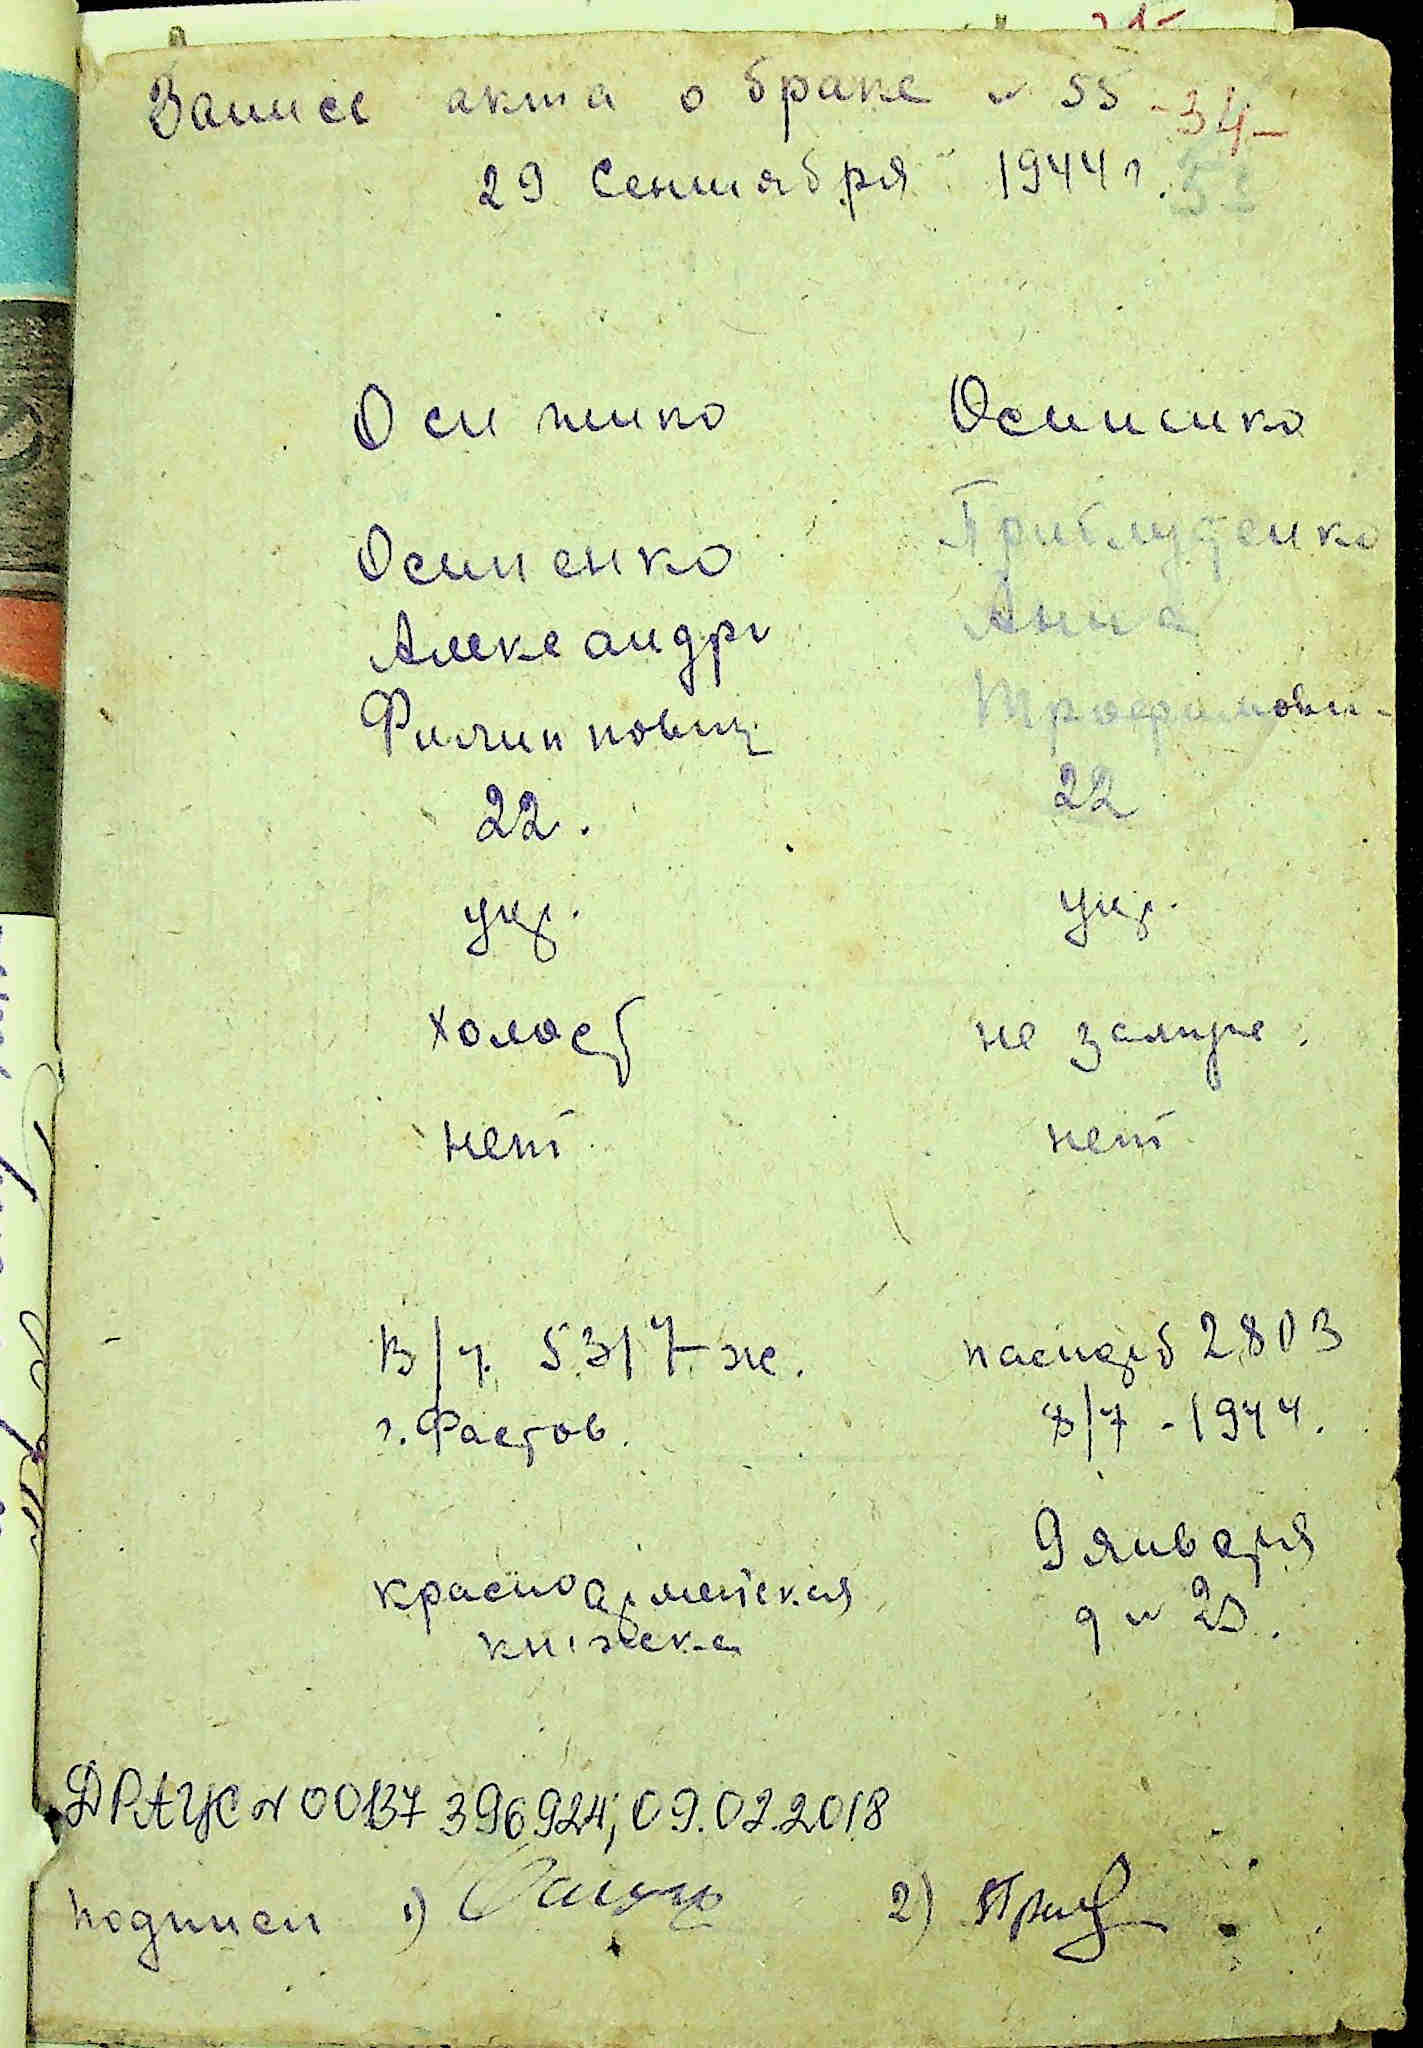 Запись акта о браке № 55 -34-
29 Сентября 1944 г. 53
Осипенко Осипенко
Осипенко Приблуденко
Александр Анна
Филиппович Трофимовн-
22. 22
укр. укр.
холост не замуже.
нет нет
В/ч. 5317-ж. паспорт 2803
г. Фастов. 8/7 - 1944.
9 января
красноармейская
книжка
ДРАЦС № 00137396924; 09.02.2018
подписи 1) 2)